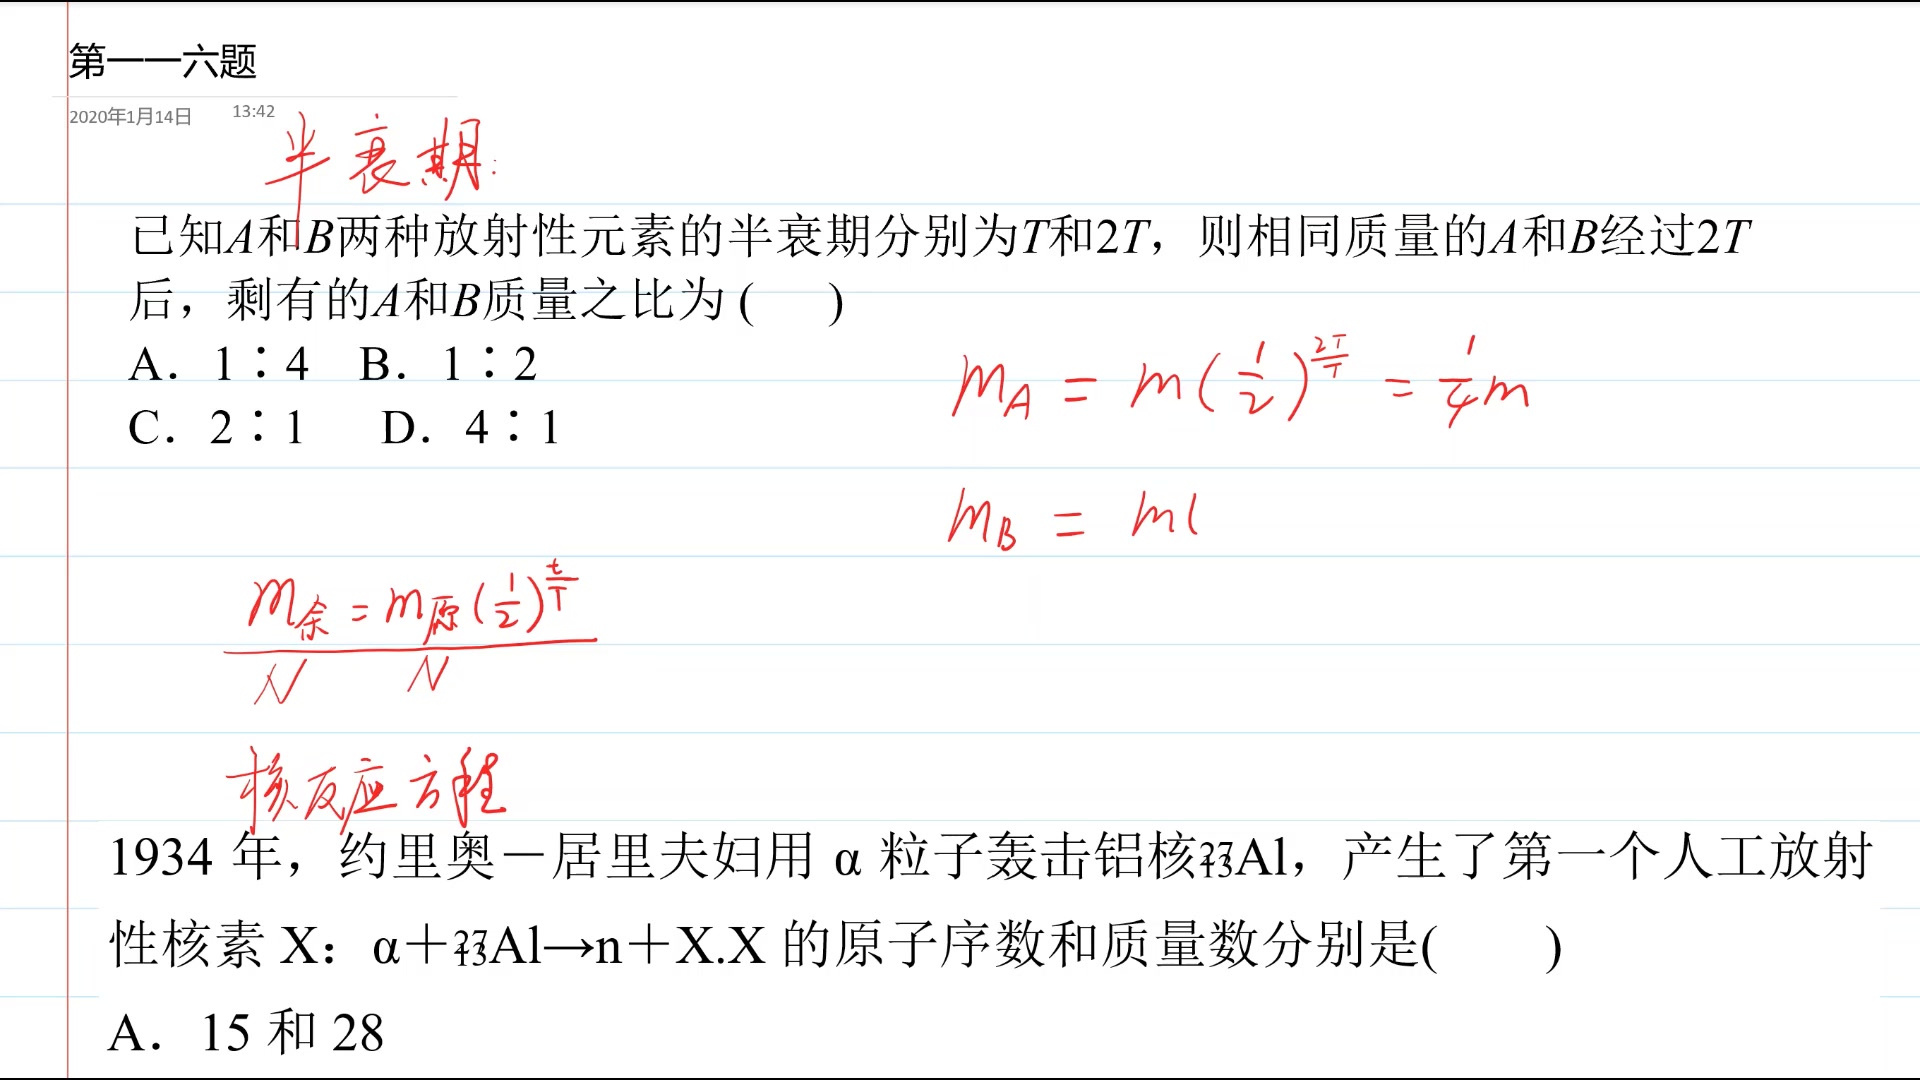 第一一六题
2020年1月14日 13:42
半衰期:
已知A和B两种放射性元素的半衰期分别为T和2T，则相同质量的A和B经过2T
后，剩有的A和B质量之比为 ( )
A．1∶4 B．1∶2
C．2∶1 D．4∶1
m_A = m(1/2)^{2T/T} = 1/4 m
m_B = m(
m余 = m原(1/2)^{t/T}
N N
核反应方程
1934 年，约里奥－居里夫妇用 α 粒子轰击铝核²⁷₁₃Al，产生了第一个人工放射
性核素 X：α＋²⁷₁₃Al→n＋X.X 的原子序数和质量数分别是( )
A．15 和 28